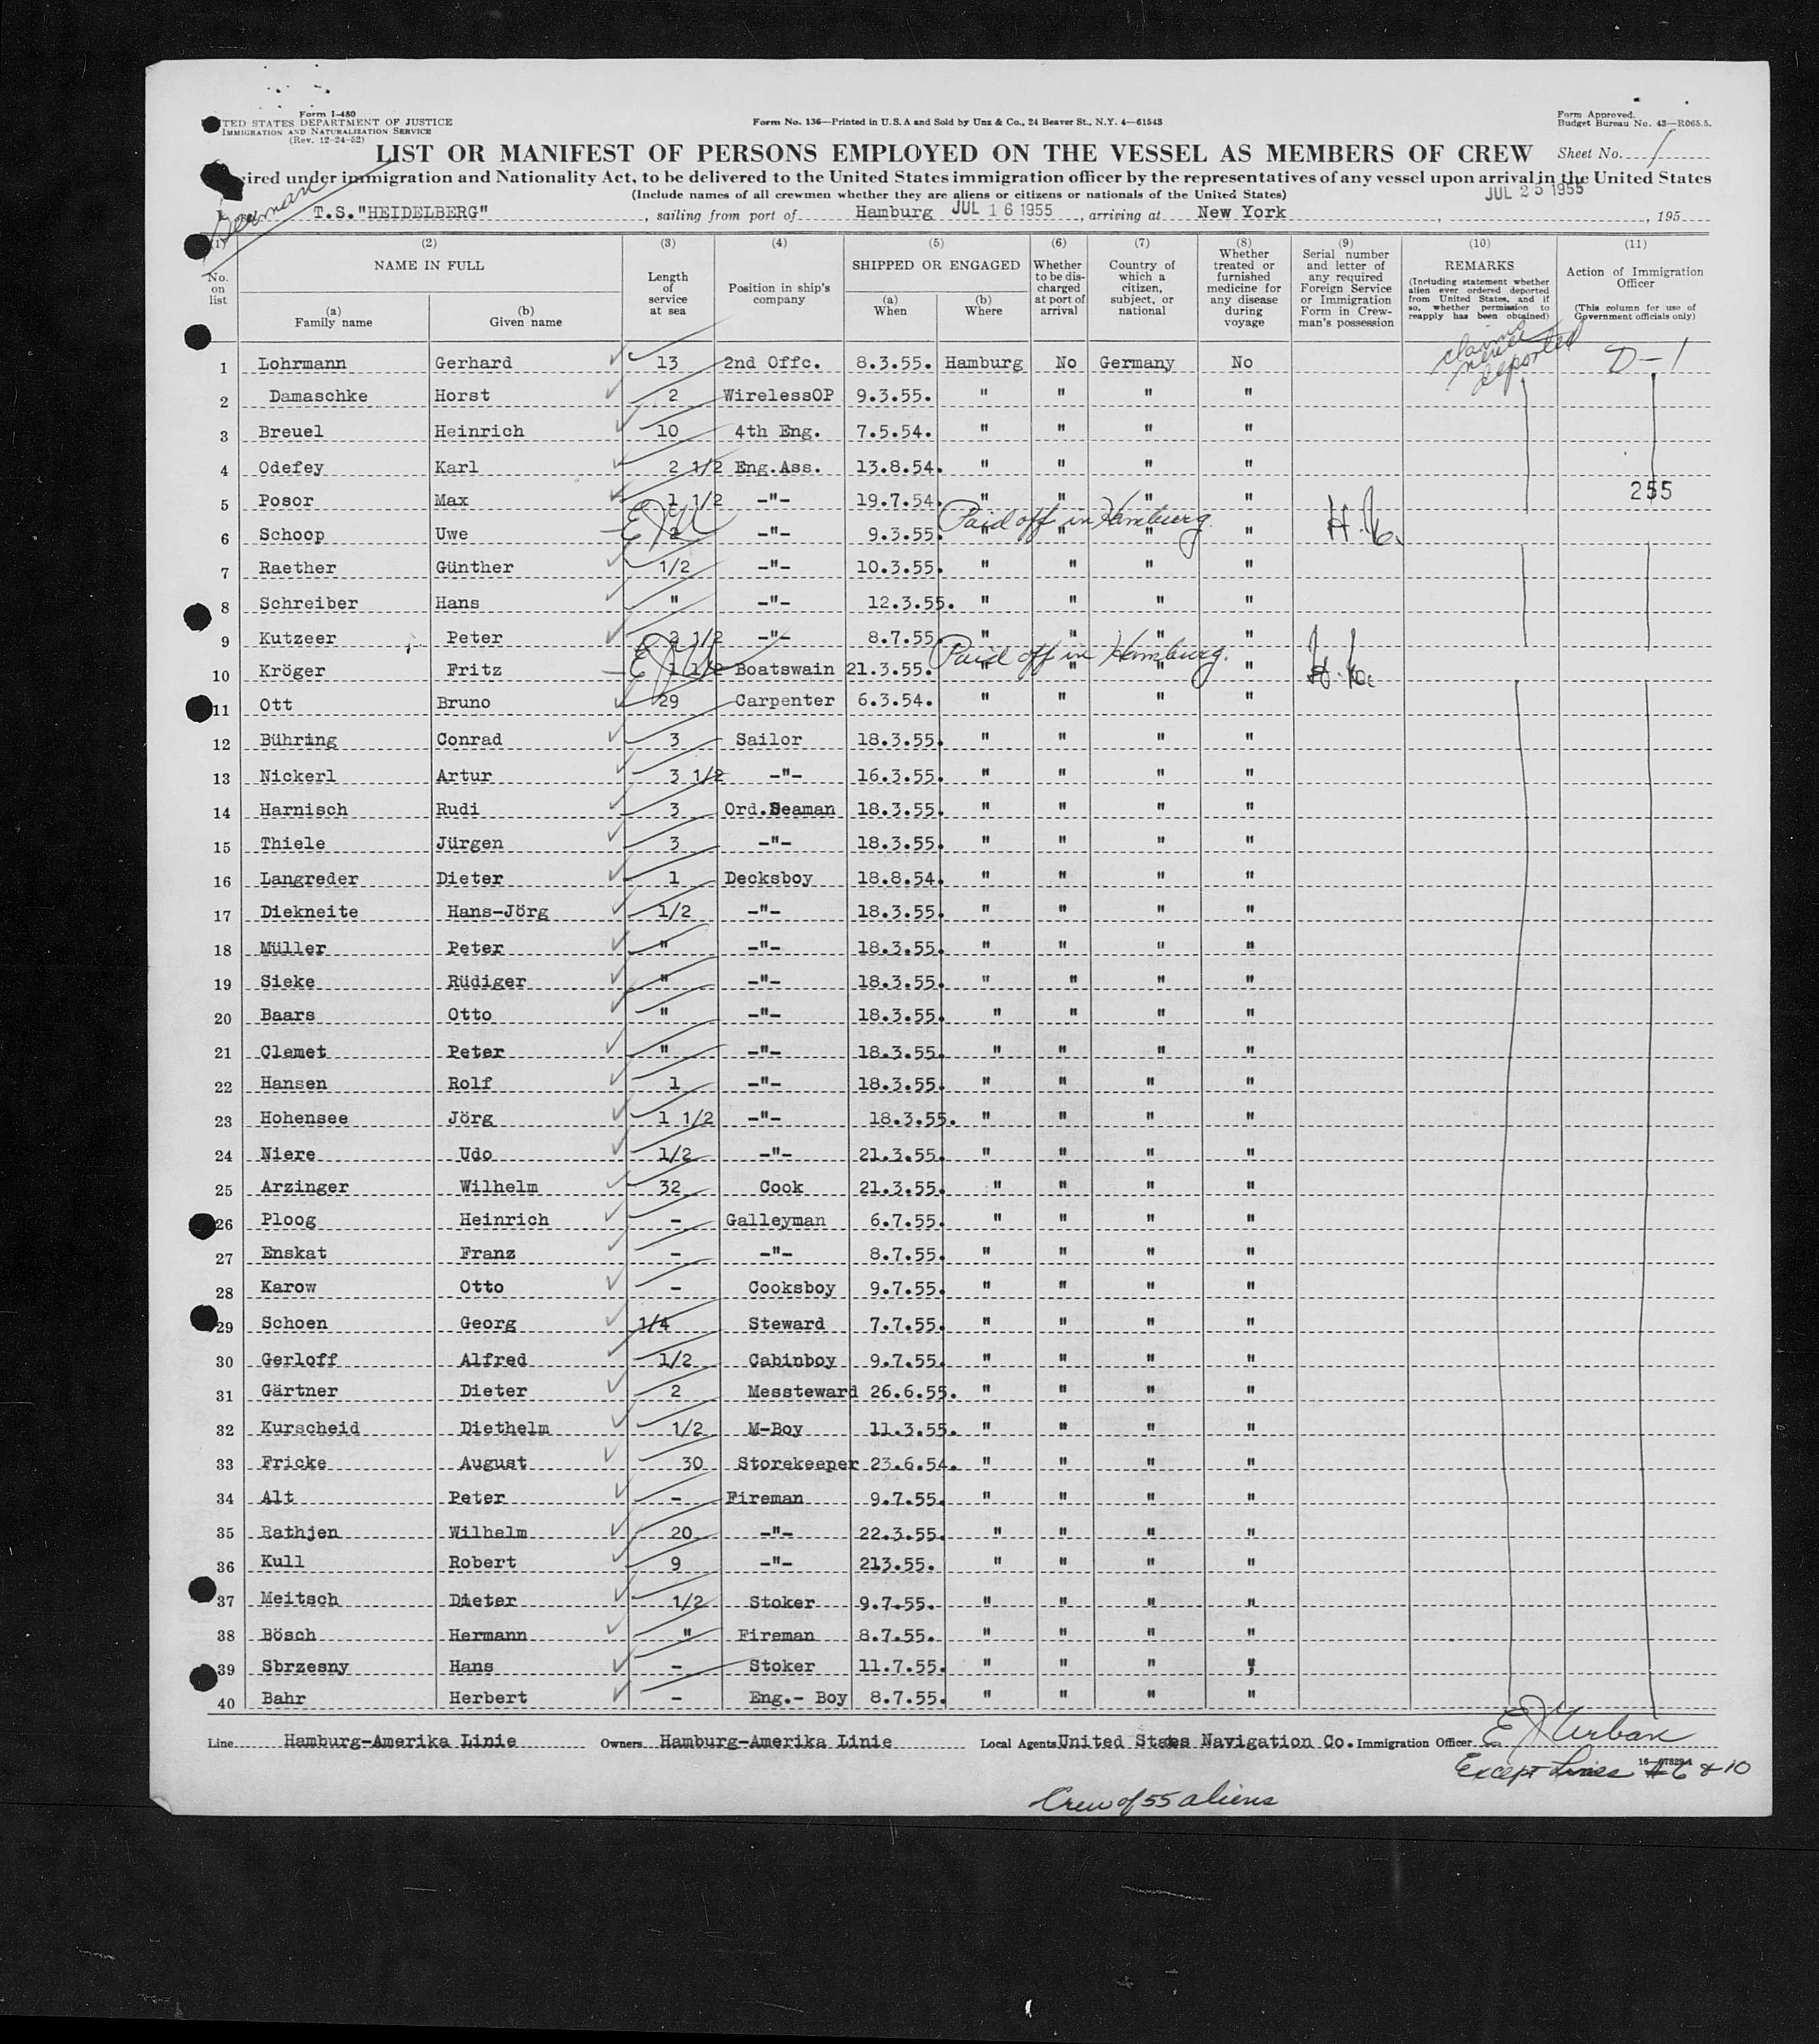 Form I-480
UNITED STATES DEPARTMENT OF JUSTICE
IMMIGRATION AND NATURALIZATION SERVICE
(Rev. 12-24-52)
Form No. 136—Printed in U.S.A and Sold by Unz & Co., 24 Beaver St., N.Y. 4—61543
Form Approved.
Budget Bureau No. 43—R065.5.
LIST OR MANIFEST OF PERSONS EMPLOYED ON THE VESSEL AS MEMBERS OF CREW Sheet No. 1
ired under immigration and Nationality Act, to be delivered to the United States immigration officer by the representatives of any vessel upon arrival in the United States
(Include names of all crewmen whether they are aliens or citizens or nationals of the United States)
German
JUL 25 1955
T.S."HEIDELBERG" , sailing from port of Hamburg JUL 16 1955 , arriving at New York , , 195
(1) (2) (3) (4) (5) (6) (7) (8) (9) (10) (11)
No. on list
NAME IN FULL
(a) Family name
(b) Given name
Length of service at sea
Position in ship's company
SHIPPED OR ENGAGED
(a) When
(b) Where
Whether to be discharged at port of arrival
Country of which a citizen, subject, or national
Whether treated or furnished medicine for any disease during voyage
Serial number and letter of any required Foreign Service or Immigration Form in Crewman's possession
REMARKS
(Including statement whether alien ever ordered deported from United States, and if so, whether permission to reapply has been obtained)
Action of Immigration Officer
(This column for use of Government officials only)
1 Lohrmann Gerhard 13 2nd Offc. 8.3.55. Hamburg No Germany No claims never deported D-1
2 Damaschke Horst 2 WirelessOP 9.3.55. " " " "
3 Breuel Heinrich 10 4th Eng. 7.5.54. " " " "
4 Odefey Karl 2 1/2 Eng.Ass. 13.8.54. " " " "
5 Posor Max 1 1/2 -"- 19.7.54. " " " " 255
6 Schoop Uwe 2 -"- 9.3.55. " " " " Paid off in Hamburg.
7 Raether Günther 1/2 -"- 10.3.55. " " " "
8 Schreiber Hans " -"- 12.3.55. " " " "
9 Kutzeer Peter 2 1/2 -"- 8.7.55. " " " "
10 Kröger Fritz 1 1/2 Boatswain 21.3.55. " " " " Paid off in Hamburg.
11 Ott Bruno 29 Carpenter 6.3.54. " " " "
12 Bühring Conrad 3 Sailor 18.3.55. " " " "
13 Nickerl Artur 3 1/2 -"- 16.3.55. " " " "
14 Harnisch Rudi 3 Ord.Seaman 18.3.55. " " " "
15 Thiele Jürgen 3 -"- 18.3.55. " " " "
16 Langreder Dieter 1 Decksboy 18.8.54. " " " "
17 Diekneite Hans-Jörg 1/2 -"- 18.3.55. " " " "
18 Müller Peter " -"- 18.3.55. " " " "
19 Sieke Rüdiger " -"- 18.3.55. " " " "
20 Baars Otto " -"- 18.3.55. " " " "
21 Clemet Peter " -"- 18.3.55. " " " "
22 Hansen Rolf 1 -"- 18.3.55. " " " "
23 Hohensee Jörg 1 1/2 -"- 18.3.55. " " " "
24 Niere Udo 1/2 -"- 21.3.55. " " " "
25 Arzinger Wilhelm 32 Cook 21.3.55. " " " "
26 Ploog Heinrich - Galleyman 6.7.55. " " " "
27 Enskat Franz - -"- 8.7.55. " " " "
28 Karow Otto - Cooksboy 9.7.55. " " " "
29 Schoen Georg 1/4 Steward 7.7.55. " " " "
30 Gerloff Alfred 1/2 Cabinboy 9.7.55. " " " "
31 Gärtner Dieter 2 Messteward 26.6.55. " " " "
32 Kurscheid Diethelm 1/2 M-Boy 11.3.55. " " " "
33 Fricke August 30 Storekeeper 23.6.54. " " " "
34 Alt Peter - Fireman 9.7.55. " " " "
35 Rathjen Wilhelm 20 -"- 22.3.55. " " " "
36 Kull Robert 9 -"- 213.55. " " " "
37 Meitsch Dieter 1/2 Stoker 9.7.55. " " " "
38 Bösch Hermann " Fireman 8.7.55. " " " "
39 Sbrzesny Hans - Stoker 11.7.55. " " " "
40 Bahr Herbert - Eng.- Boy 8.7.55. " " " "
Line Hamburg-Amerika Linie Owners Hamburg-Amerika Linie Local Agents United States Navigation Co. Immigration Officer E J Urban
Except Lines #6 & 10
Crew of 55 aliens